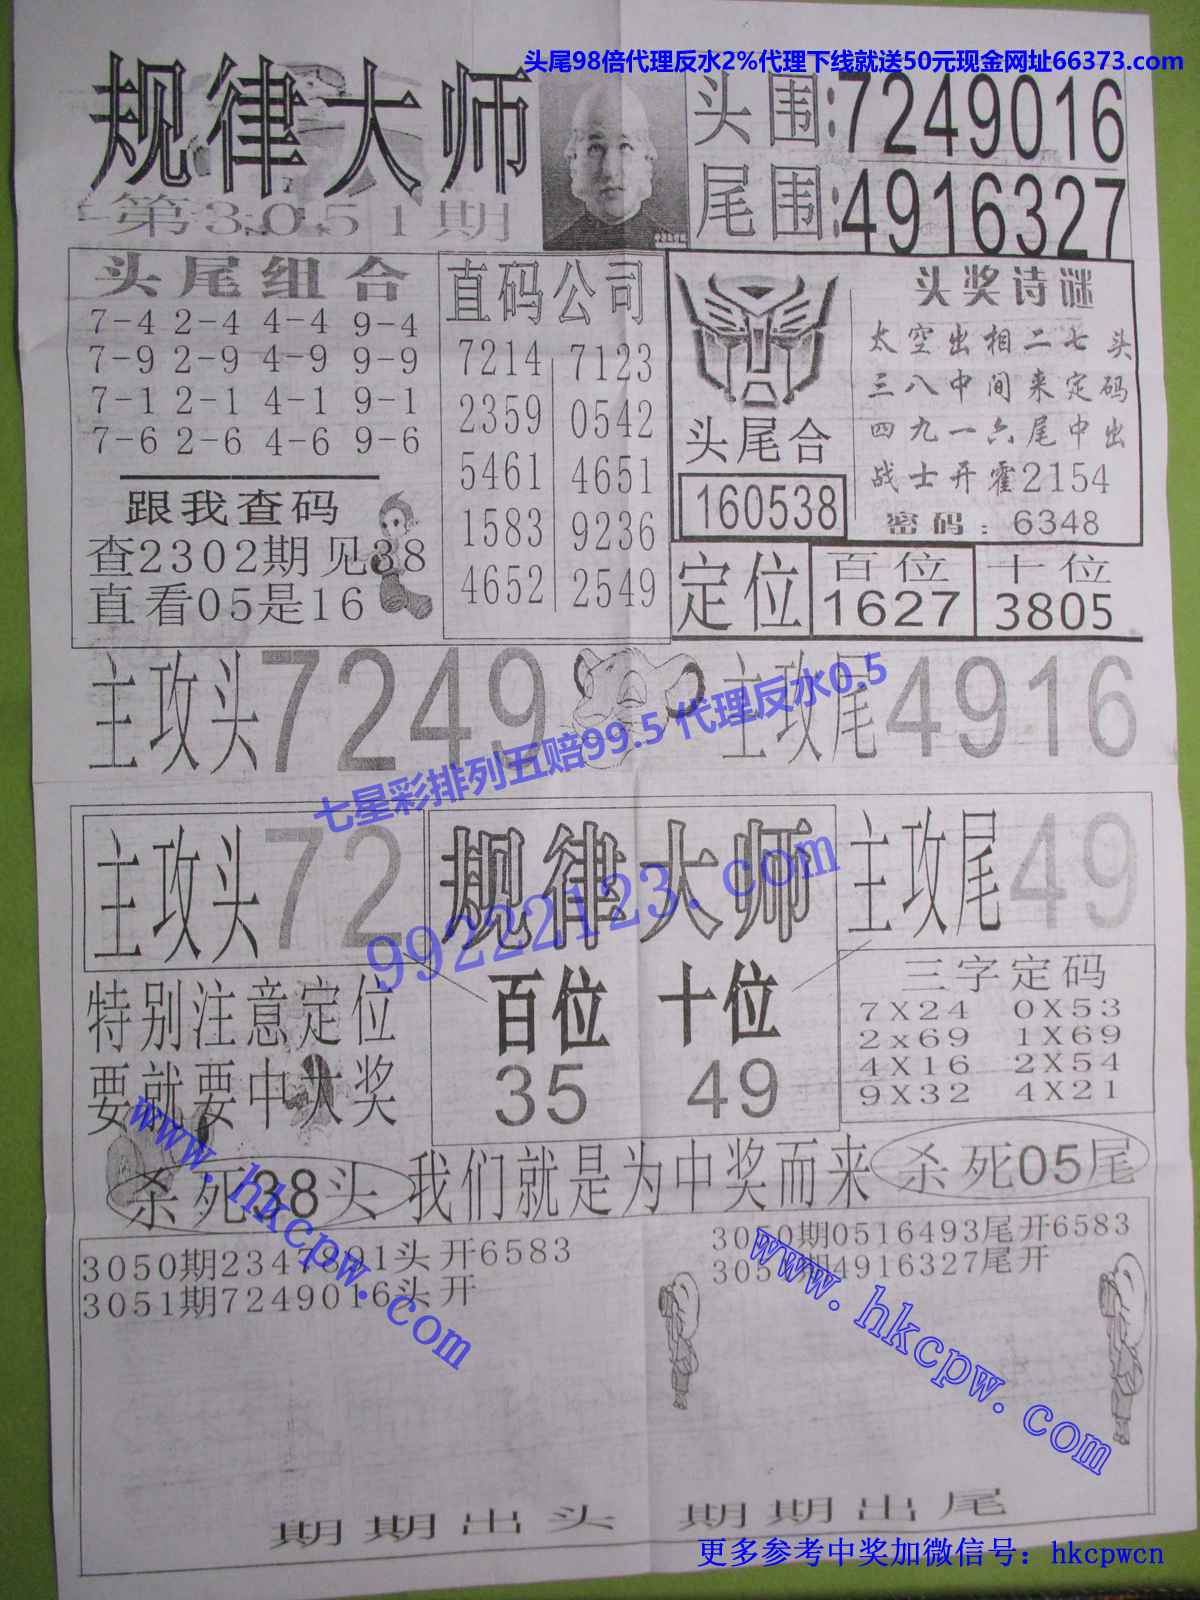 头尾98倍代理反水2%代理下线就送50元现金网址66373.com
规律大师
第3051期
头围:7249016
尾围:4916327
头尾组合
7-4 2-4 4-4 9-4
7-9 2-9 4-9 9-9
7-1 2-1 4-1 9-1
7-6 2-6 4-6 9-6
跟我查码
查2302期见38
直看05是16
直码公司
7214 7123
2359 0542
5461 4651
1583 9236
4652 2549
头尾合
160538
头奖诗谜
太空出相二七头
三八中间来定码
四九一六尾中出
战士开霍2154
密码:6348
定位
百位
1627
十位
3805
主攻头7249
主攻尾4916
七星彩排列五赔99.5 代理反水0.5
主攻头72
规律大师
主攻尾49
99222123.com
特别注意定位
要就要中大奖
百位 十位
35 49
三字定码
7X24 0X53
2x69 1X69
4X16 2X54
9X32 4X21
杀死38头
我们就是为中奖而来
杀死05尾
www.hkcpw.com
www.hkcpw.com
3050期2347891头开6583
3051期7249016头开
3050期0516493尾开6583
3051期4916327尾开
期期出头 期期出尾
更多参考中奖加微信号：hkcpwcn